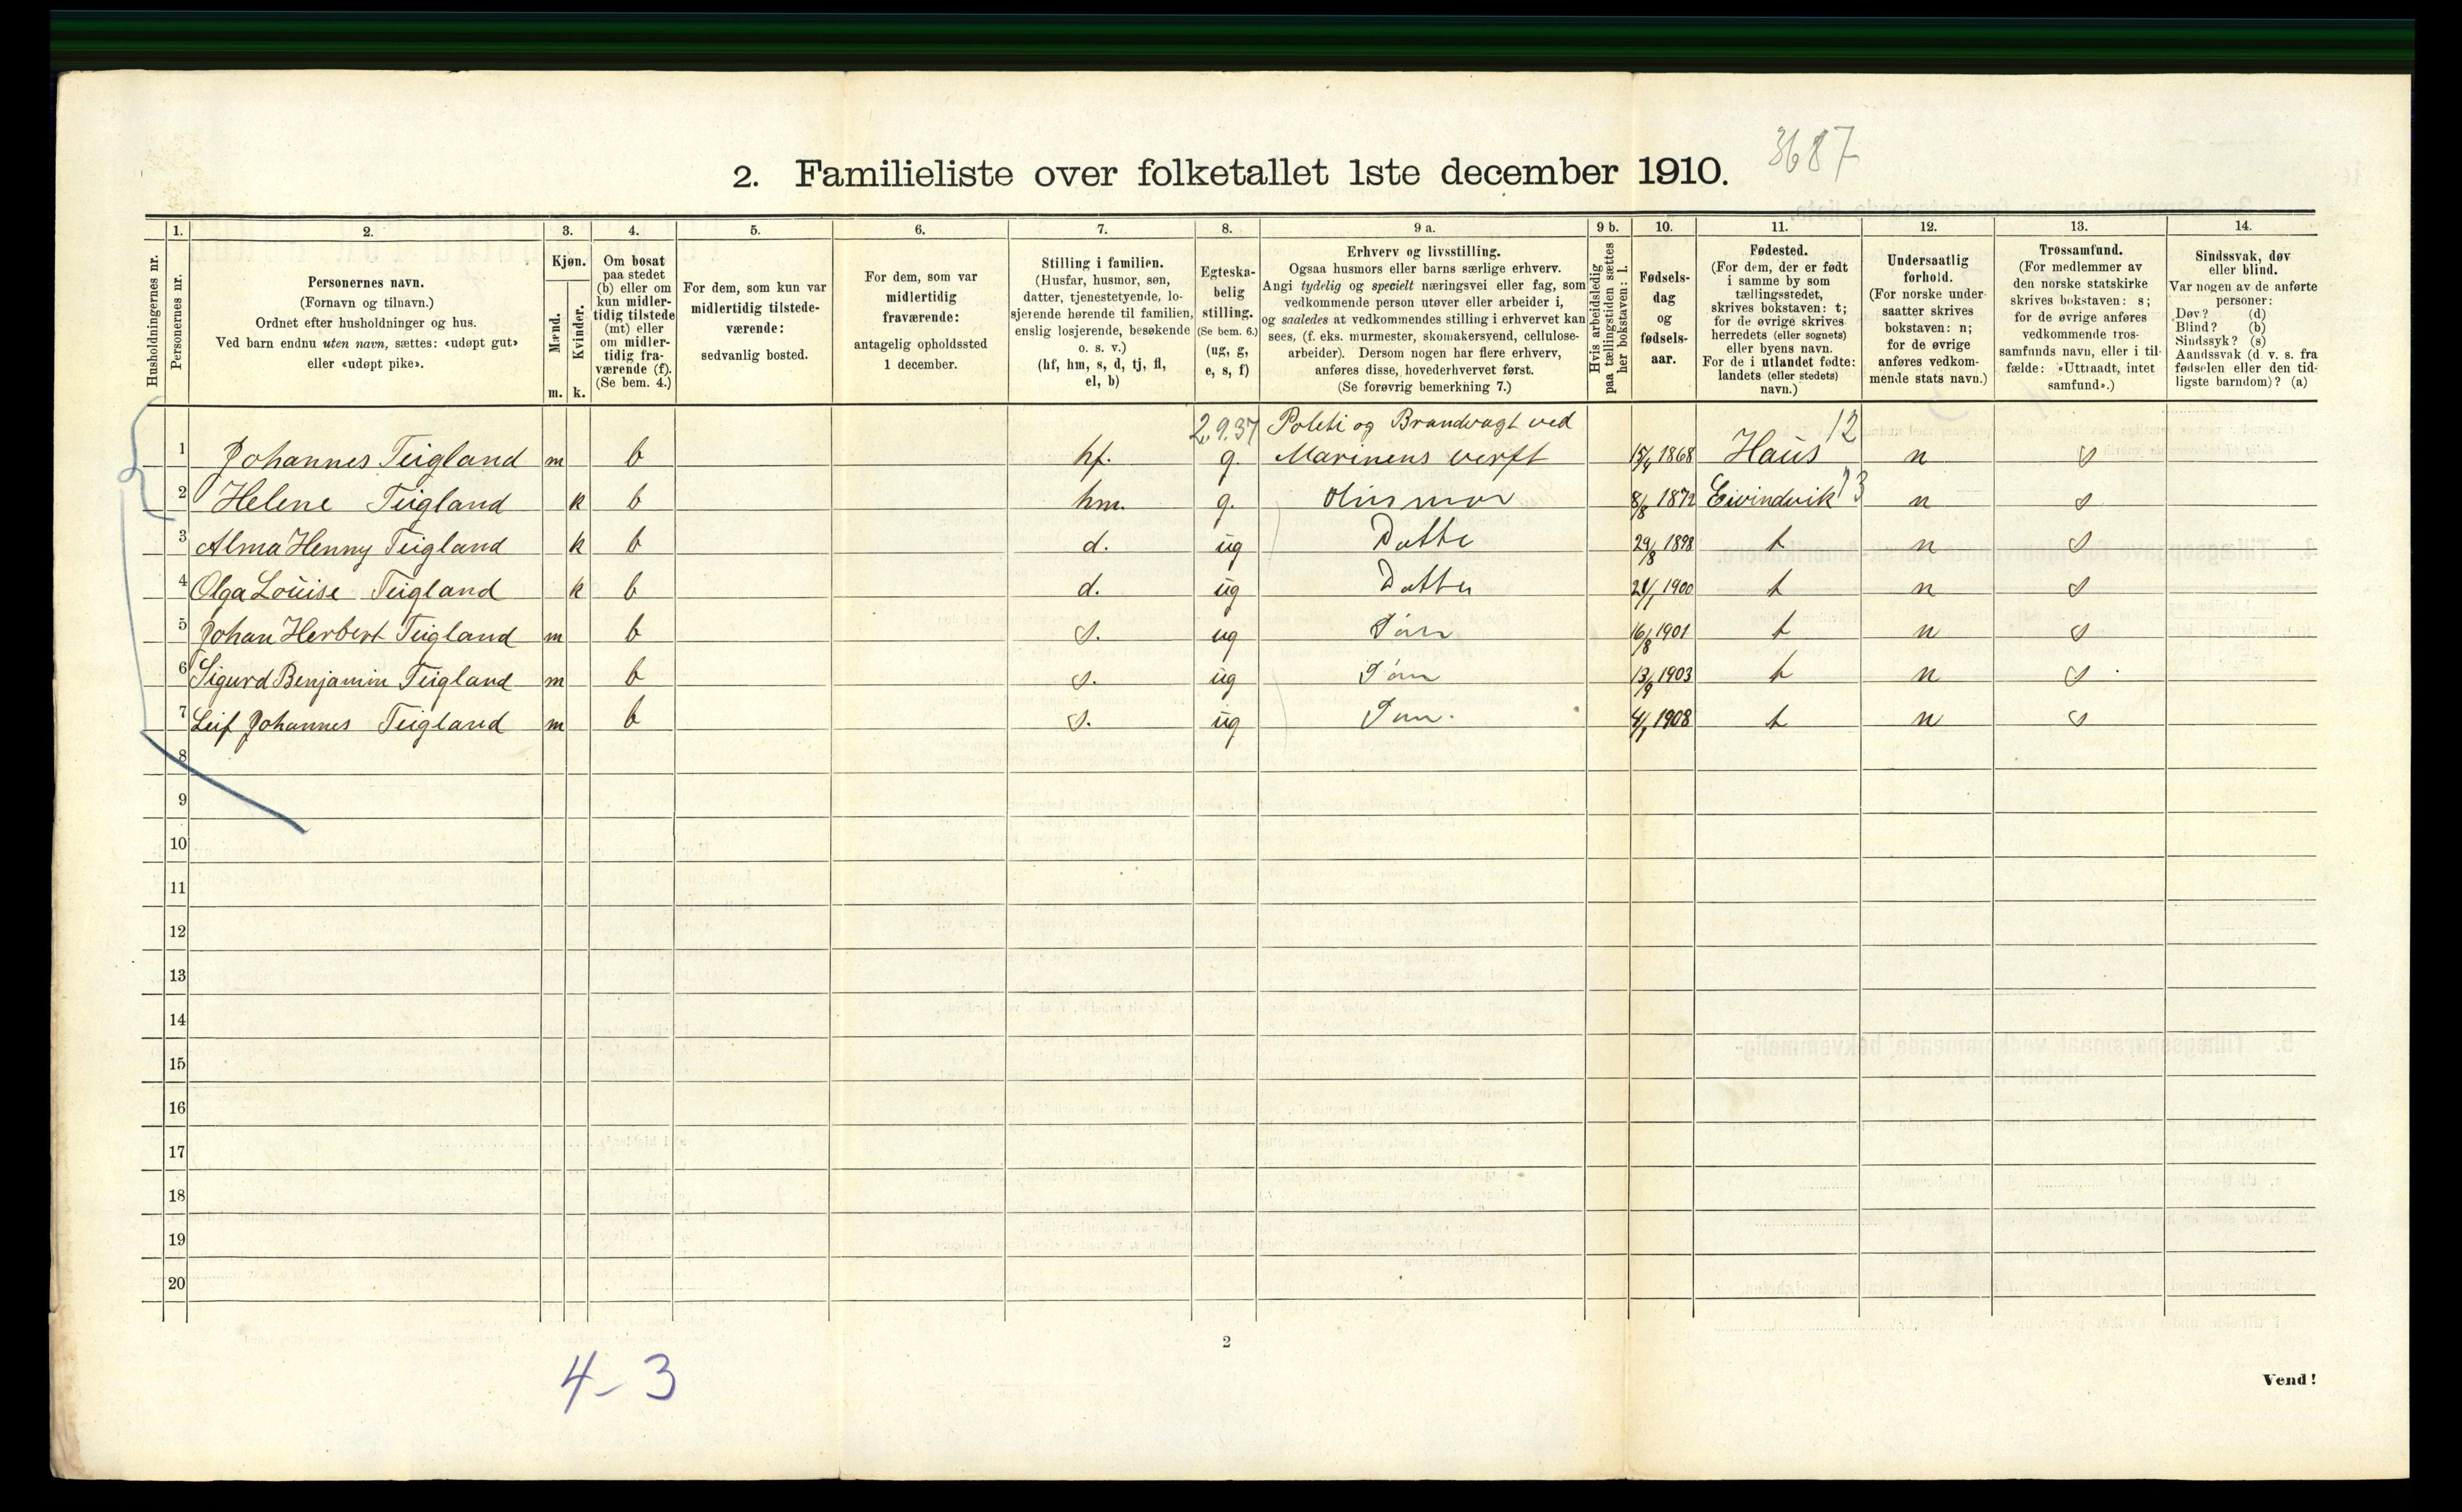 3687
2. Familieliste over folketallet 1ste december 1910.
Husholdningernes nr.
1. Personernes nr.
2. Personernes navn.
(Fornavn og tilnavn.)
Ordnet efter husholdninger og hus.
Ved barn endnu uten navn, sættes: «udøpt gut»
eller «udøpt pike».
3. Kjøn.
Mænd. Kvinder.
m. k.
4. Om bosat
paa stedet
(b) eller om
kun midler-
tidig tilstede
(mt) eller
om midler-
tidig fra-
værende (f).
(Se bem. 4.)
5. For dem, som kun var
midlertidig tilstede-
værende:
sedvanlig bosted.
6. For dem, som var
midlertidig
fraværende:
antagelig opholdssted
1 december.
7. Stilling i familien.
(Husfar, husmor, søn,
datter, tjenestetyende, lo-
sjerende hørende til familien,
enslig losjerende, besøkende
o. s. v.)
(hf, hm, s, d, tj, fl,
el, b)
8. Egteska-
belig
stilling.
(Se bem. 6.)
(ug, g,
e, s, f)
9 a. Erhverv og livsstilling.
Ogsaa husmors eller barns særlige erhverv.
Angi tydelig og specielt næringsvei eller fag, som
vedkommende person utøver eller arbeider i,
og saaledes at vedkommendes stilling i erhvervet kan
sees, (f. eks. murmester, skomakersvend, cellulose-
arbeider). Dersom nogen har flere erhverv,
anføres disse, hovederhvervet først.
(Se forøvrig bemerkning 7.)
9 b. Hvis arbeidsledig
paa tællingstiden sættes
her bokstaven: l.
10. Fødsels-
dag
og
fødsels-
aar.
11. Fødested.
(For dem, der er født
i samme by som
tællingsstedet,
skrives bokstaven: t;
for de øvrige skrives
herredets (eller sognets)
eller byens navn.
For de i utlandet fødte:
landets (eller stedets)
navn.)
12. Undersaatlig
forhold.
(For norske under-
saatter skrives
bokstaven: n;
for de øvrige
anføres vedkom-
mende stats navn.)
13. Trossamfund.
(For medlemmer av
den norske statskirke
skrives bokstaven: s;
for de øvrige anføres
vedkommende tros-
samfunds navn, eller i til-
fælde: «Uttraadt, intet
samfund».)
14. Sindssvak, døv
eller blind.
Var nogen av de anførte
personer:
Døv? (d)
Blind? (b)
Sindssyk? (s)
Aandssvak (d. v. s. fra
fødselen eller den tid-
ligste barndom)? (a)
2.9.37 Politi og Brandvagt ved 12
1 Johannes Teigland m b hf. g. Marinens verft 15/4 1868 Haus n s
2 Helene Teigland k b hm. g. Husmor 8/8 1872 Eivindvik 13 n s
3 Alma Henny Teigland k b d. ug Datte 29/8 1898 t n s
4 Olga Louise Teigland k b d. ug Datter 21/1 1900 t n s
5 Johan Herbert Teigland m b s. ug Søn 16/8 1901 t n s
6 Sigurd Benjamin Teigland m b s. ug Søn 13/9 1903 t n s
7 Leif Johannes Teigland m b s. ug Søn. 4/1 1908 t n s
8
9
10
11
12
13
14
15
16
17
18
19
20
2
4-3
Vend!